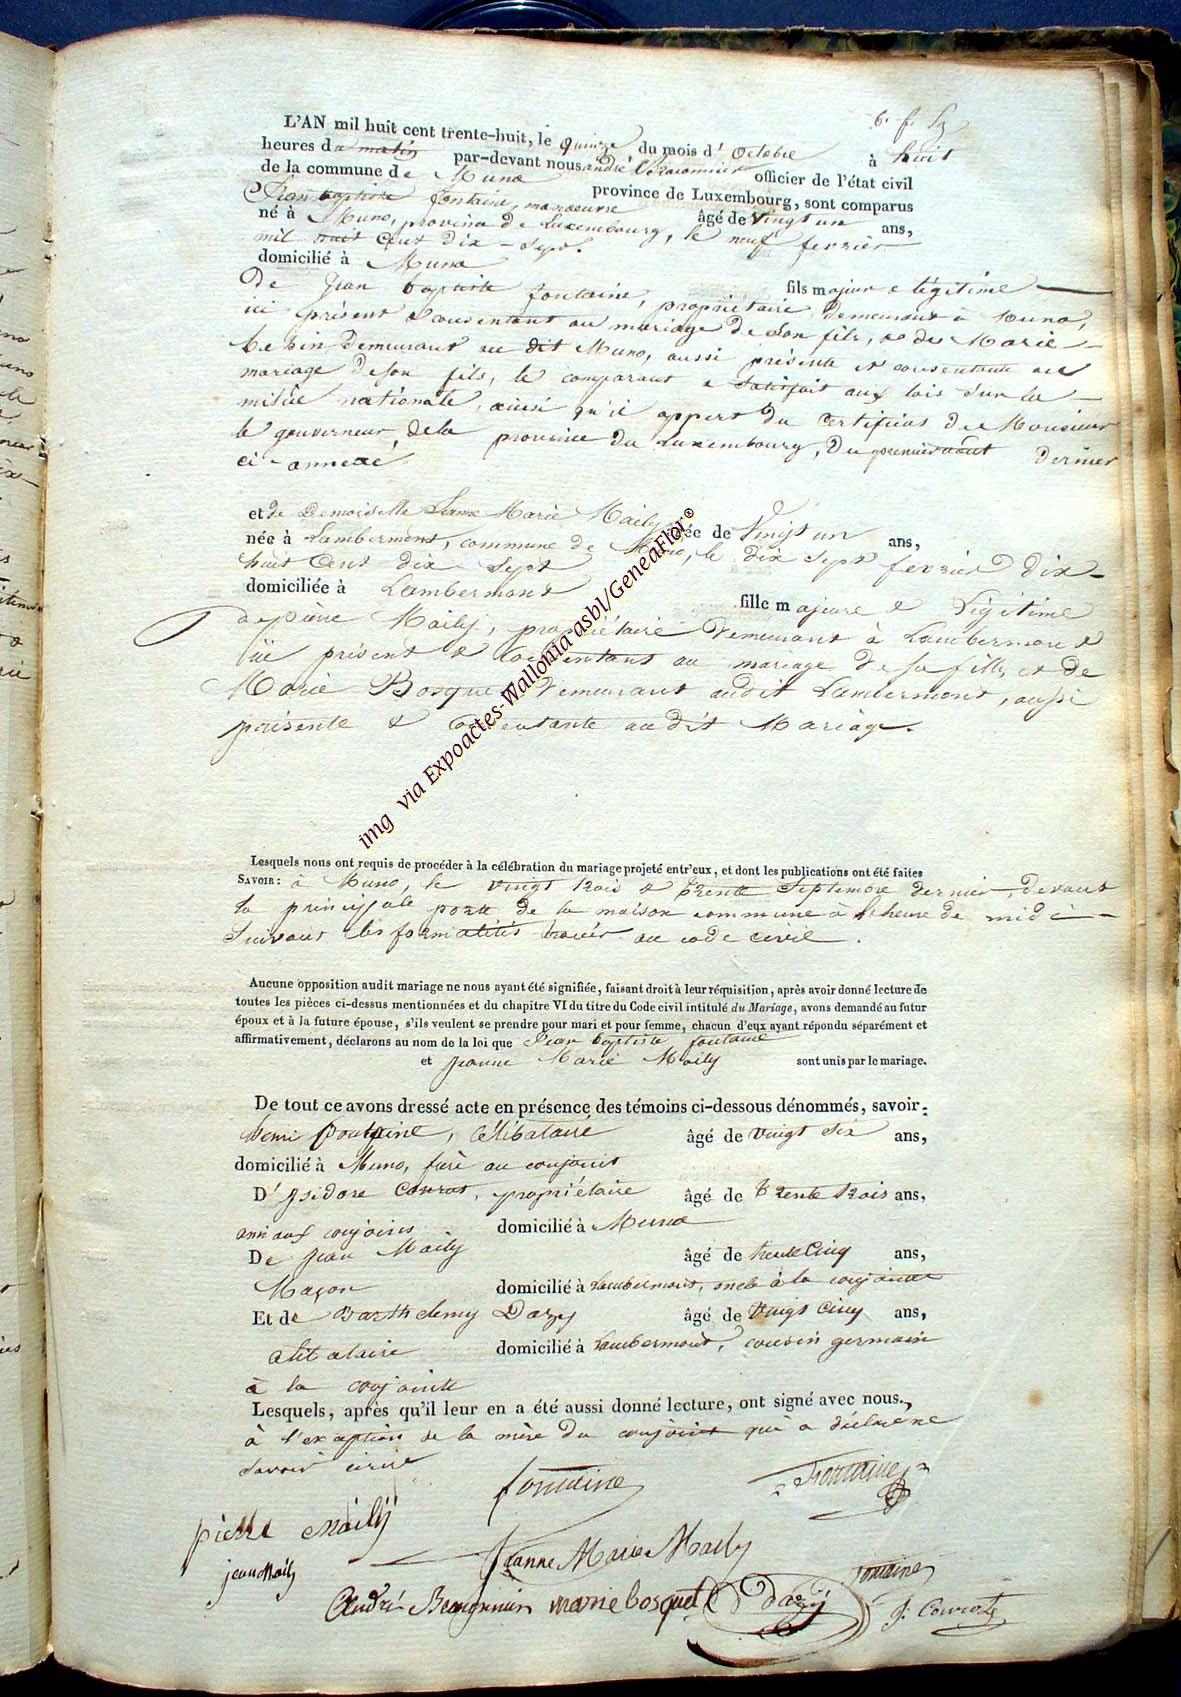 6. f. Lz
L'AN mil huit cent trente-huit, le quinze du mois d' Octobre à huit
heures du matin par-devant nous andré officier de l'état civil
de la commune de Muno province de Luxembourg, sont comparus
Jean baptiste fontaine, manoeuvre âgé de Vingt un ans,
né à Muno, province de Luxembourg, le neuf fevrier
mil huit Cent dix-sept.
domicilié à Muno fils majeur & légitime
De Jean baptiste fontaine, propriétaire demeurant à Muno,
ici présent & consentant au mariage de son fils, & de Marie
demeurant au dit Muno, aussi présente et consentante au
mariage de son fils, le comparant a satisfait aux lois sur la
milice nationale, ainsi qu'il appert du certificat de Monsieur
le gouverneur de la province du Luxembourg, du premier aout dernier
ci-annexé
et de Demoiselle Jeanne Marie Maily âgée de Vingt un ans,
née à Lambermont, commune de Muno, le dix sept fevrier dix-
huit Cent dix-sept
domiciliée à Lambermont fille majeure & Légitime
de pierre Maily, propriétaire demeurant à Lambermont
ici présent & consentant au mariage de sa fille, et de
Marie Bosquet demeurant audit Lambermont, aussi
présente & consentante audit Mariage.
img via Expoactes-Wallonia asbl/GeneaFlor©
Lesquels nous ont requis de procéder à la célébration du mariage projeté entr'eux, et dont les publications ont été faites
SAVOIR: à Muno, le vingt trois & trente Septembre dernier, devant
la principale porte de la maison commune à l'heure de midi
Suivant les formalités au code civil.
Aucune opposition audit mariage ne nous ayant été signifiée, faisant droit à leur réquisition, après avoir donné lecture de
toutes les pièces ci-dessus mentionnées et du chapitre VI du titre du Code civil intitulé du Mariage, avons demandé au futur
époux et à la future épouse, s'ils veulent se prendre pour mari et pour femme, chacun d'eux ayant répondu séparément et
affirmativement, déclarons au nom de la loi que Jean baptiste fontaine
et Jeanne Marie Maily sont unis par le mariage.
De tout ce avons dressé acte en présence des témoins ci-dessous dénommés, savoir:
henri fontaine, Célibataire âgé de vingt six ans,
domicilié à Muno, frère au conjoint
D'Isidore Conrot, propriétaire âgé de trente trois ans,
ami aux conjoints domicilié à Muno
De Jean Maily âgé de trente Cinq ans,
Maçon domicilié à Lambermont, oncle à la conjointe
Et de Barthelemy Dazy âgé de Vingt Cinq ans,
domicilié à Lambermont, cousin germain
à la conjointe
Lesquels, après qu'il leur en a été aussi donné lecture, ont signé avec nous.,
à l'exception de la mère du conjoint qui a déclaré ne
savoir écrire
fontaine Fontaine
pierre Maily
jean Maily Jeanne Marie Maily fontaine
André marie bosquet Dazy J. Conrot